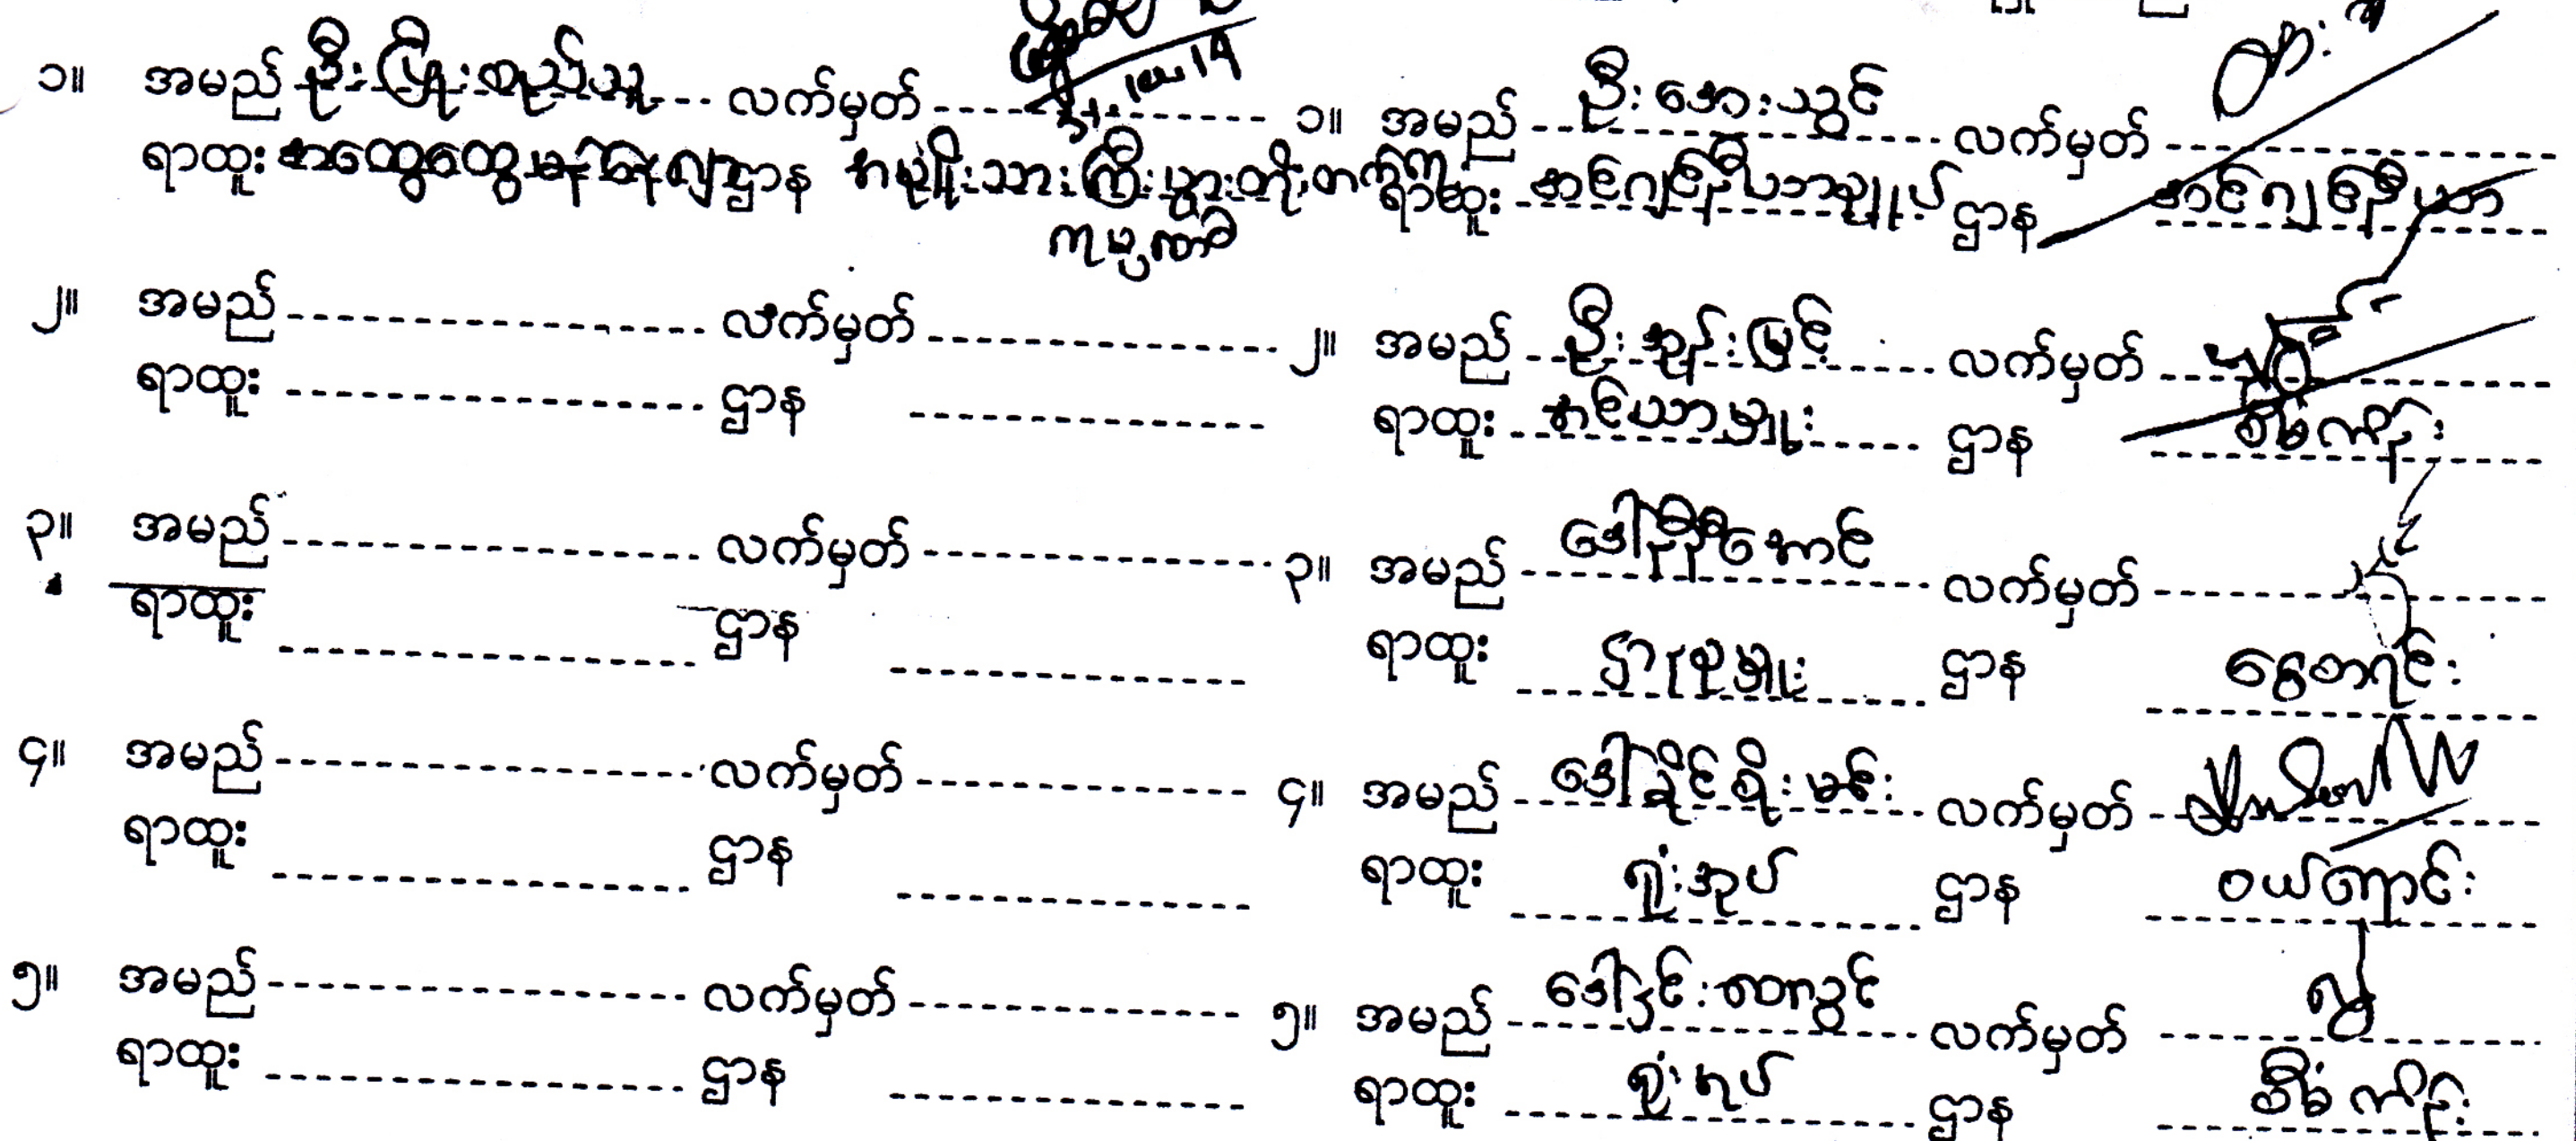 ၁။ အမည် ဦးဖြိုးစည်သူ လက်မှတ်
ရာထူး အထွေထွေမန်နေဂျာ ဌာန အမျိုးသားကြီးပွားတိုးတက်မှု
ကုမ္ပဏီ
၂။ အမည် လက်မှတ်
ရာထူး ဌာန
၃။ အမည် လက်မှတ်
ရာထူး ဌာန
၄။ အမည် လက်မှတ်
ရာထူး ဌာန
၅။ အမည် လက်မှတ်
ရာထူး ဌာန
၁။ အမည် ဦးအေးသွင် လက်မှတ်
ရာထူး အင်ဂျင်နီယာချုပ် ဌာန အင်ဂျင်နီယာ
၂။ အမည် ဦးအုန်းမြင့် လက်မှတ်
ရာထူး အင်ယာမှူး ဌာန စီမံကိန်း
၃။ အမည် ဒေါ်နီနီအောင် လက်မှတ်
ရာထူး ဌာနစုမှူး ဌာန ငွေစာရင်း
၄။ အမည် ဒေါ်ခိုင်စိုးမင်း လက်မှတ်
ရာထူး ရုံးအုပ် ဌာန ဝယ်ရောင်း
၅။ အမည် ဒေါ်နှင်း လက်မှတ်
ရာထူး ရုံးအုပ် ဌာန စီမံကိန်း